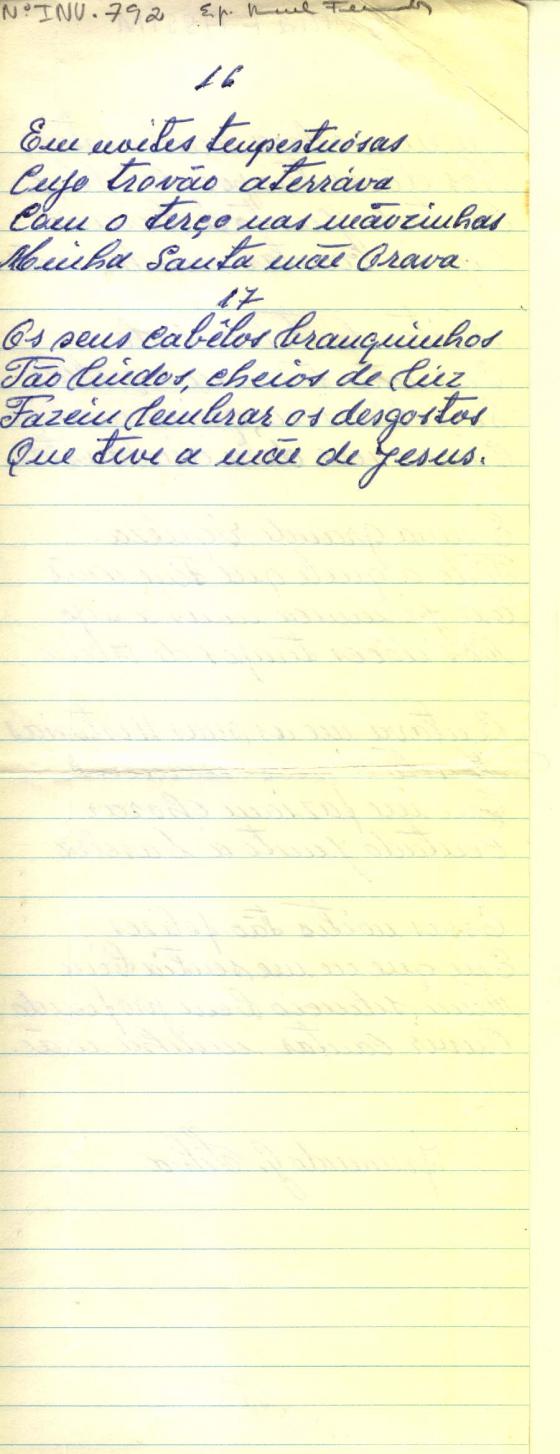 Nº INV. 792
16
Em noites tempestuósas
Cujo trovão aterráva
Com o terço nas mãozinhas
Minha Santa mãe Orava.
17
Os seus cabêlos branquinhos
Tão lindos, cheios de lúz
Fazem lembrar os desgostos
Que teve a mãe de Jesus.